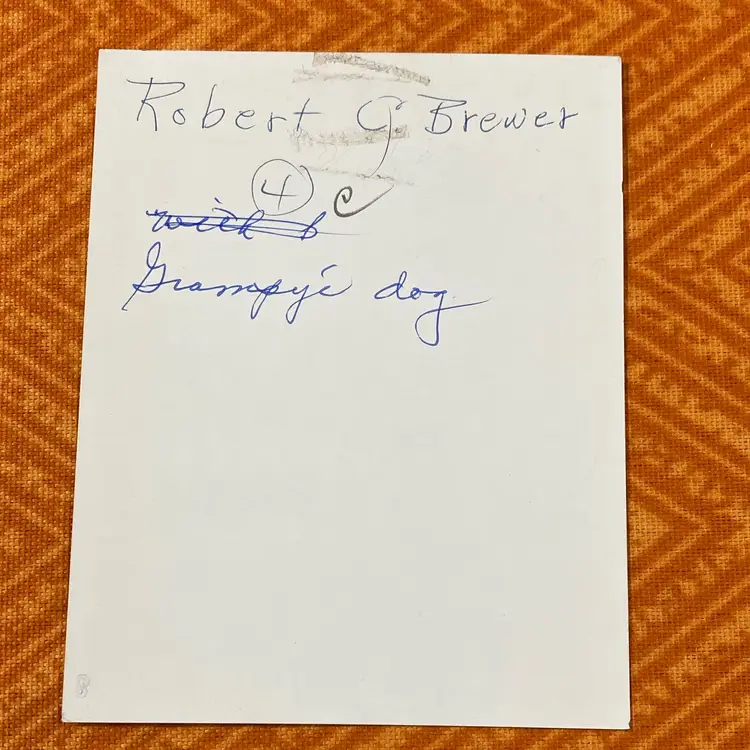 Robert G Brewer
4 C
with b
Grampy's dog
B